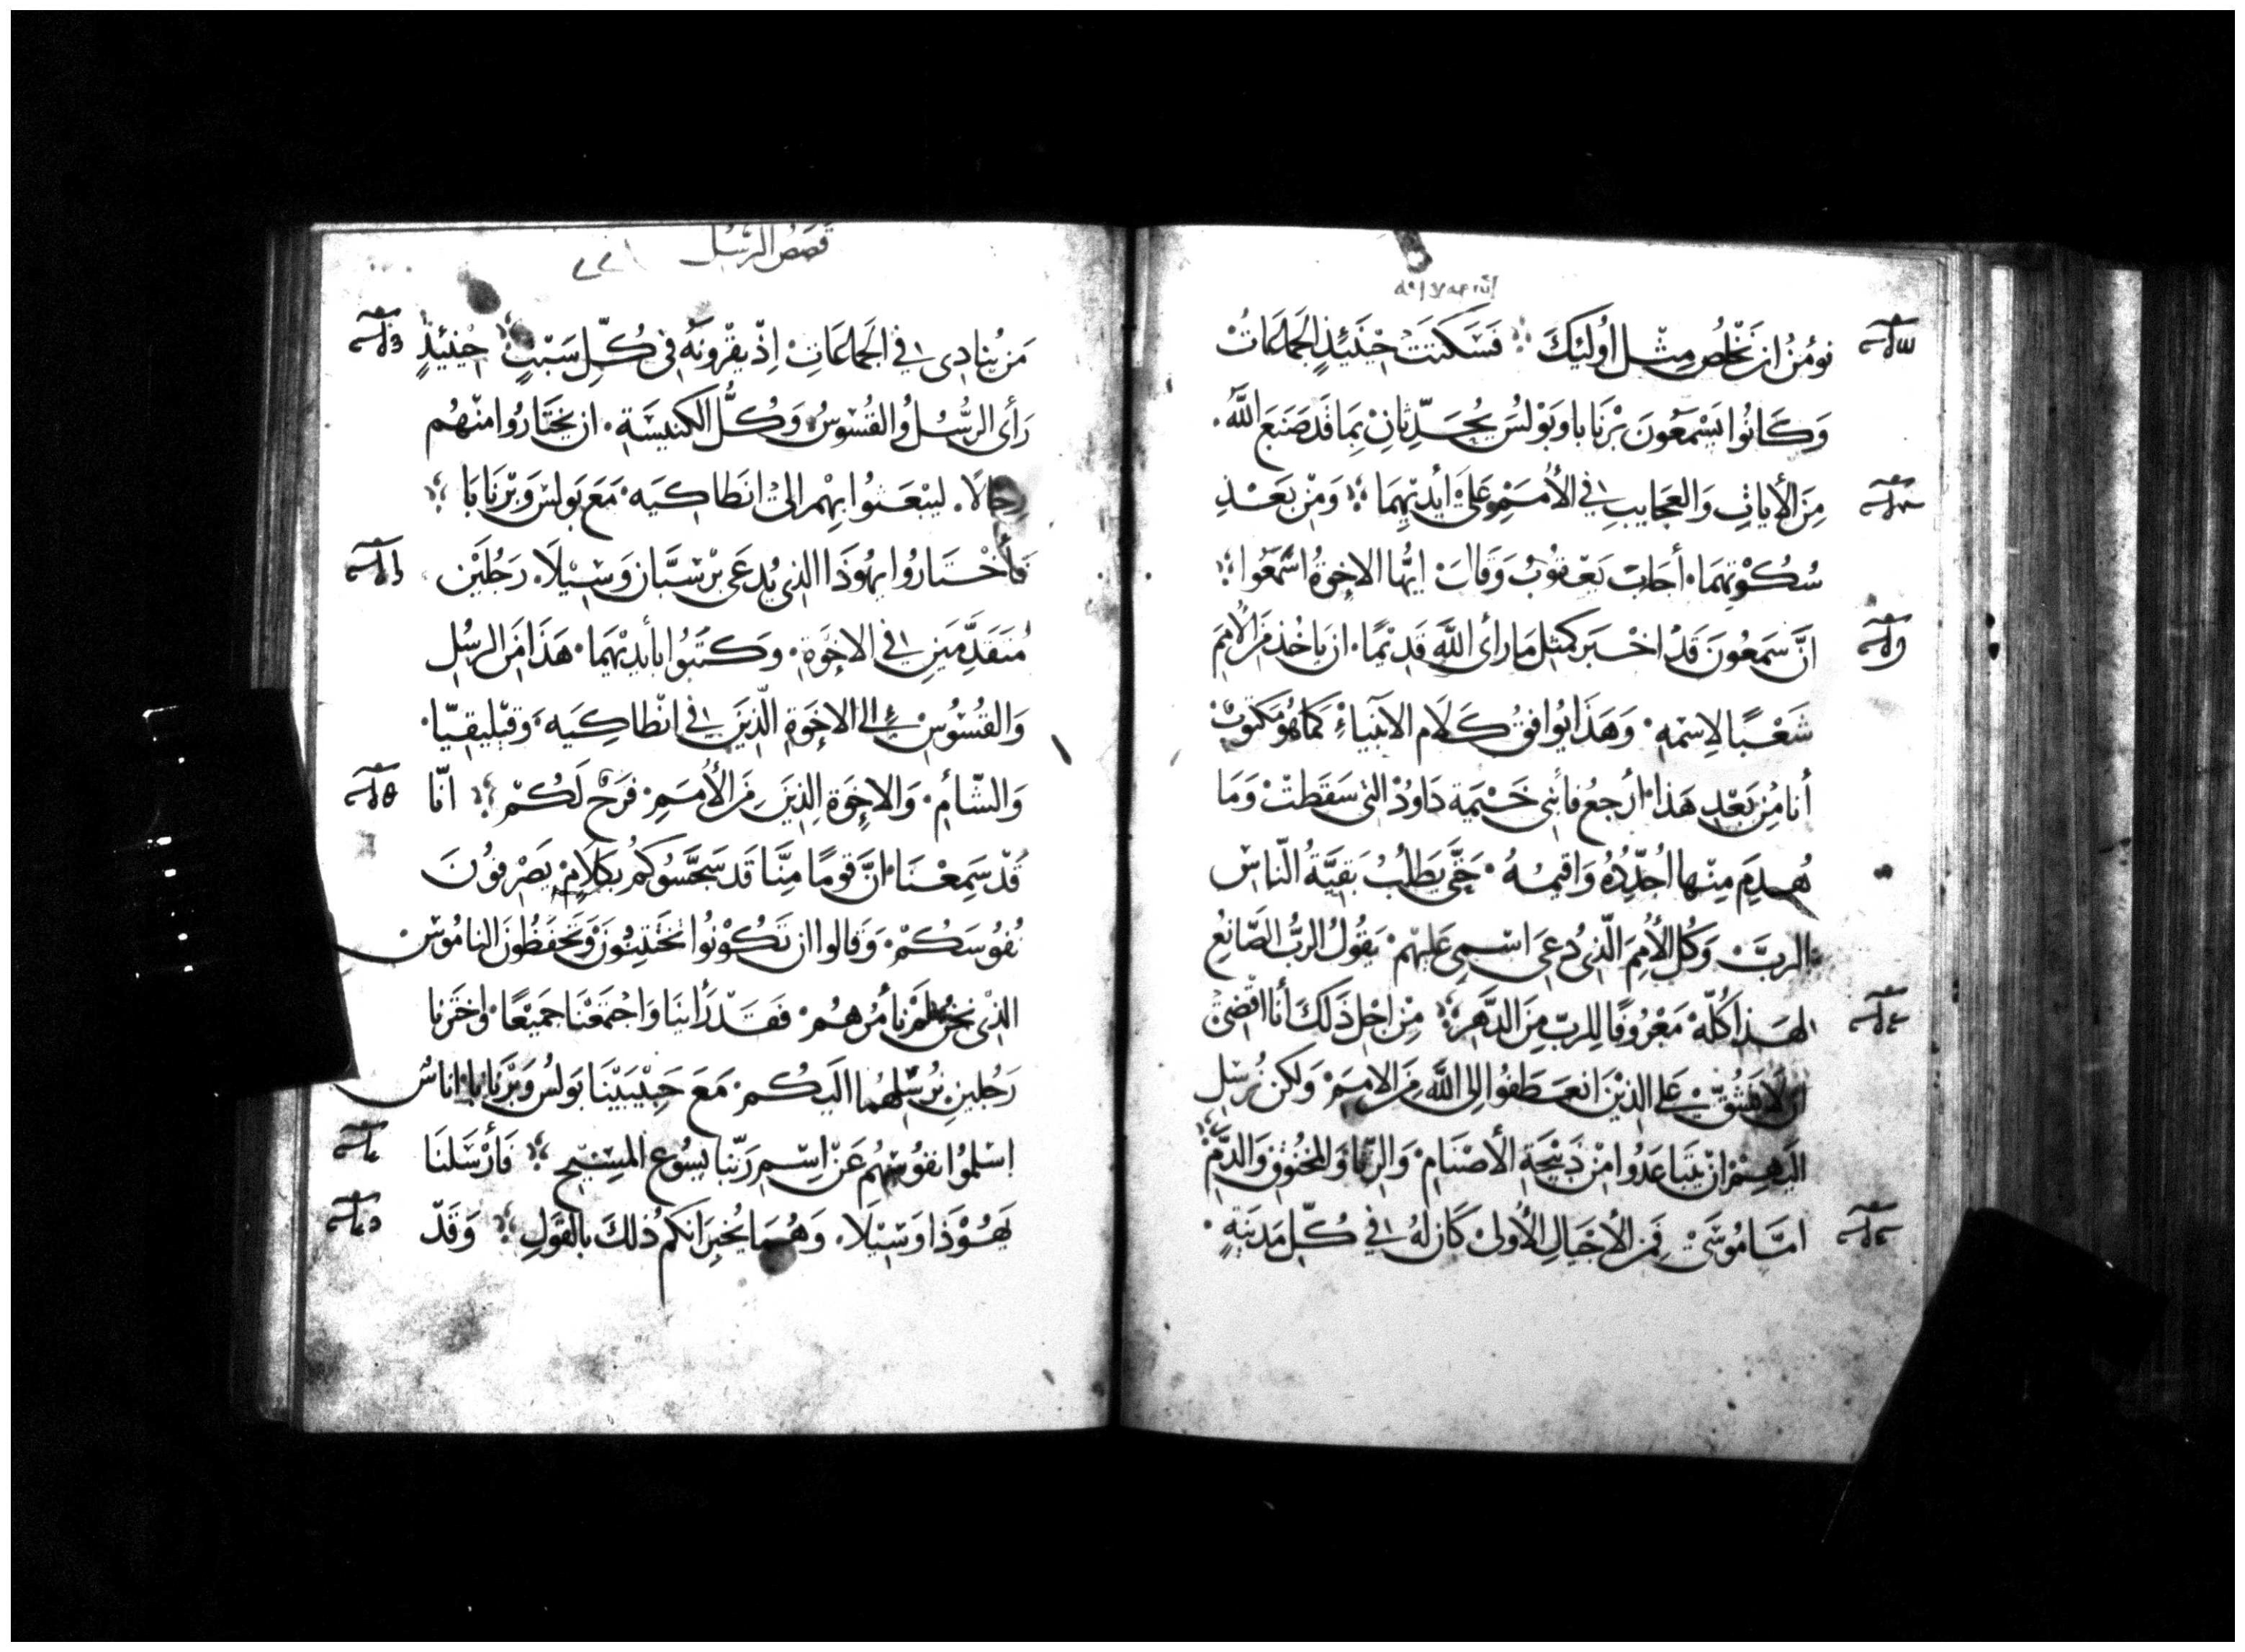 نوُمنُ ان نَخْلُص مِثْل اُولَيِكَ فَسَكتَتْ حِيْنَئِذٍ الجَماعَاتُ
وَكَانُوا يَسْمَعُونَ بَرْنَابا وبَوْلسُ يُحَدِّثانِ بِمَا قَد صَنَعَ اللَّه
مِنَ الأياتِ وَالعَجَايبِ في الأُمَمِ عَلىَ أيْديْهِمَا وَمِنْ بَعْدِ
سُكُوْتهِمَا أجَابَ يَعْقوُبُ وَقَالَ ايُّها الاخِوَةُ اسْمَعُوا
انَّ سَمعُونَ قَدْ اخْبَر كمثِل مَا رأى اللَّه قَدِيْمًا ان يَاخُذ مَن الأُمَمِ
شَعْبًا لاِسْمهِ وَهَذا يُوافقُ كَلَام الانبَياءْ كَما هُو مَكتوبْ
أنا مُن بَعْدِ هَذا أرجعُ فابْني خَيْمَة دَاوُدْ التي سَقَطتْ وَمَا
هُدِمَ مِنْها اُجَدِّدُهُ وَاقيمُهُ حَتَّى يَطْلُبُ بَقِيَّةُ النّاسِ
الربَّ وَكُل الأُمِمَ الّذيْ دُعىَ اسْمِى عَليْهِمْ يَقُولُ الربُّ الصَّانِعُ
لهَذا كُلّهْ مَعْرُوفًا لِلربّ مِنَ الدَهَرِ مِنْ اجْلِ ذَلكَ أنَا اقْضىْ
ان لَا يَشُقّ عَلى الذيْنَ انعَطَفوُا الِى اللَّه مِنَ الامَمِ وَلكن نُرْسِل
اليَهِمْ انْ يَتَبَاعَدُوا مِنْ ذَبيْحَةِ الأصْنَامْ وَالزِنَا وَالمَخنُوقِ وَالدَمْ
امَّا مُوْسَىْ فمَن الأجْيَالِ الأُولىْ كَان لهُ في كُلّ مَدِيْنةٍ
قصَصُ الرسُل
مَن يُنادِى في الجَماعَاتِ اذْ يقْرونَهُ فى كُلّ سَبْتٍ حِيْنئِذٍ
رَأى الرُسُل وُالقُسُوسُ وَكُلُّ الكنيْسَةِ ان يَختَارُوا منْهُم
رِجَالاً ليَبْعَثوُا بِهْم الىْ انطَاكِيَه مَعَ بَولسْ وَبرْنَابَا
فَأخْتَارُوا يهُوذَا الذى يُدعَى بَرْسَبَّان وَسِيْلَا رَجُليَن
مُتَقَدِّمَينِ في الاخِوَةِ وَكَتبُوا بأيديْهَما هَذا مَن الرسُلِ
وَالقُسُوْسِ الى الاخِوَةِ الّذِينَ في انْطاكِيَه وَقيْليقيّا
وَالشّأم وَالاخِوَة الِذينَ مِنَ الأُمَمِ فرَحٌ لَكُمْ انّا
قَدْ سَمِعْنَا انَّ قَومًا مِنَّا قَد سَجَّسُوكُمْ بِكَلامِ يَصْرفوُنَ
نُفوُسَكُمْ وَقالوا ان تَكُونُوا تخْتَتِنوُنَ وَتحَفَظُونَ النامُوسْ
الذىْ نحْنُ لمْ نأمُرهُمْ فَقَدْ رَأيْنَا وَاجْتمَعْنَا جَميْعًا وَاخَترنا
رَجُلينِ نُرْسِلهُما اليَكُم مَعَ حَبيْبَيْنَا بَولسُ وَبَرْنَابا اناسٌ
اسْلمُوا نفوُسَهُم عَنْ اسِمِ رَبّنا يَسُوعِ المسَيْحِ فَأرْسَلنَا
يَهُوْذَا وَسْيلَا وَهُمَا يُخبِرَانكمُ ذلكَ بالقَولِ وَقَدْ